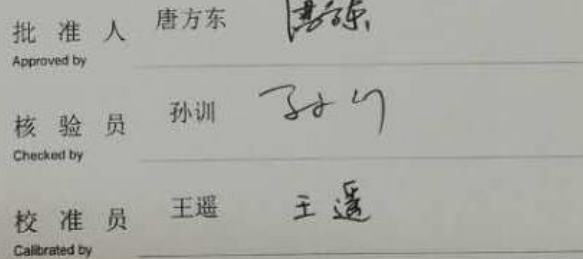 批 准 人 唐方东 唐方东
Approved by
核 验 员 孙训 孙训
Checked by
校 准 员 王遥 王遥
Calibrated by